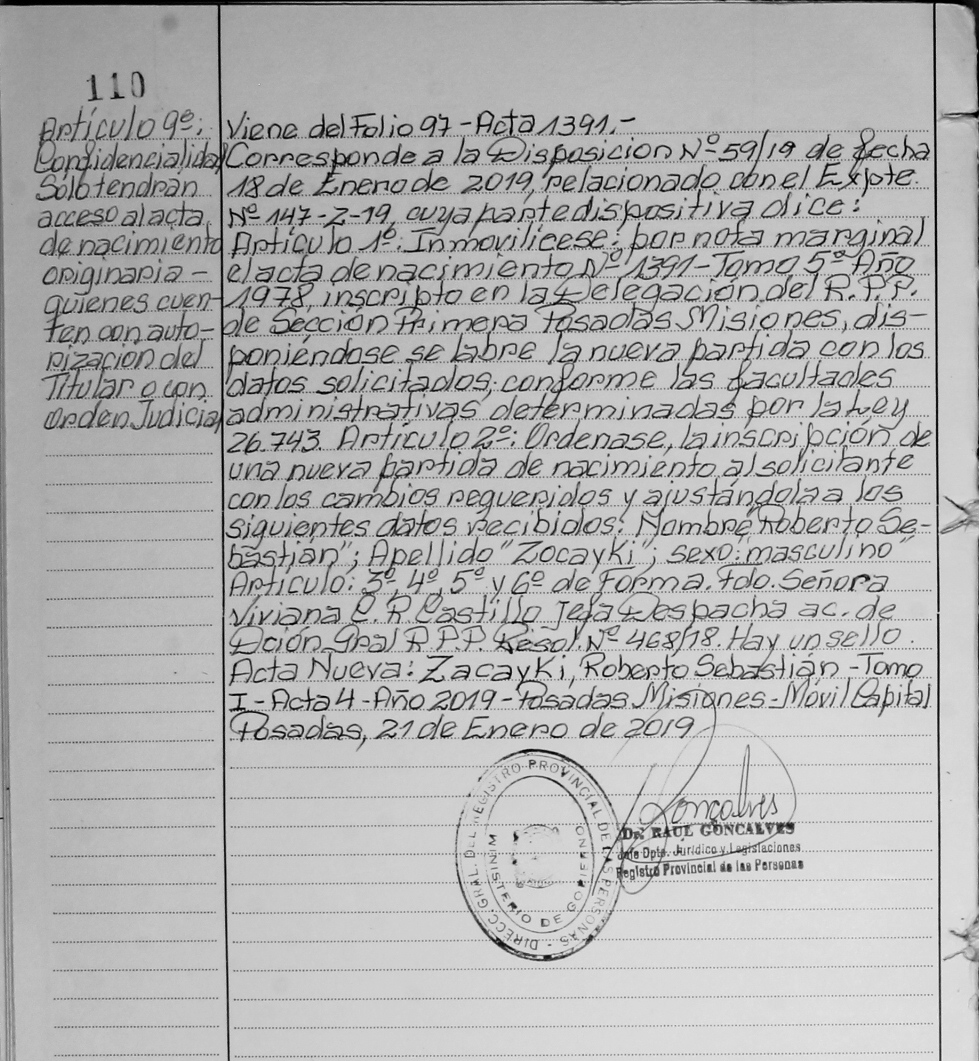 110
Artículo 9º:
Confidencialidad
Sólo tendrán
acceso al acta
de nacimiento
originaria -
quienes cuen-
ten con auto-
rización del
Titular o con
Orden Judicial
Viene del Folio 97 - Acta 1391.-
Corresponde a la Disposición Nº 59/19 de fecha
18 de Enero de 2019, relacionado con el Expte.
Nº 147-Z-19, cuya parte dispositiva dice:
Artículo 1º: Inmovilícese: por nota marginal
el acta de nacimiento Nº 1391 - Tomo 5º Año
1978, inscripto en la Delegación del R.P.P.
de Sección Primera Posadas Misiones, dis-
poniéndose se labre la nueva partida con los
datos solicitados, conforme las facultades
administrativas determinadas por la Ley
26.743. Artículo 2º: Ordenase, la inscripción de
una nueva partida de nacimiento al solicitante
con los cambios requeridos y ajustándola a los
siguientes datos recibidos: Nombre "Roberto Se-
bastián"; Apellido "Zocayki"; sexo: masculino"
Artículo: 3º, 4º, 5º y 6º de Forma. Fdo. Señora
Viviana C. R Castillo Jefa Despacha ac. de
Dción Gral R.P.P. Resol. Nº 468/18. Hay un sello.
Acta Nueva: Zacayki, Roberto Sebastián - Tomo
I - Acta 4 - Año 2019 - Posadas Misiones - Móvil Capital
Posadas, 21 de Enero de 2019
DIRECC. GRAL. DEL REGISTRO PROVINCIAL DE LAS PERSONAS -
MINISTERIO DE GOBIERNO
Goncalves
Dr. RAUL GONCALVES
Jefe Dpto. Jurídico y Legislaciones
Registro Provincial de las Personas